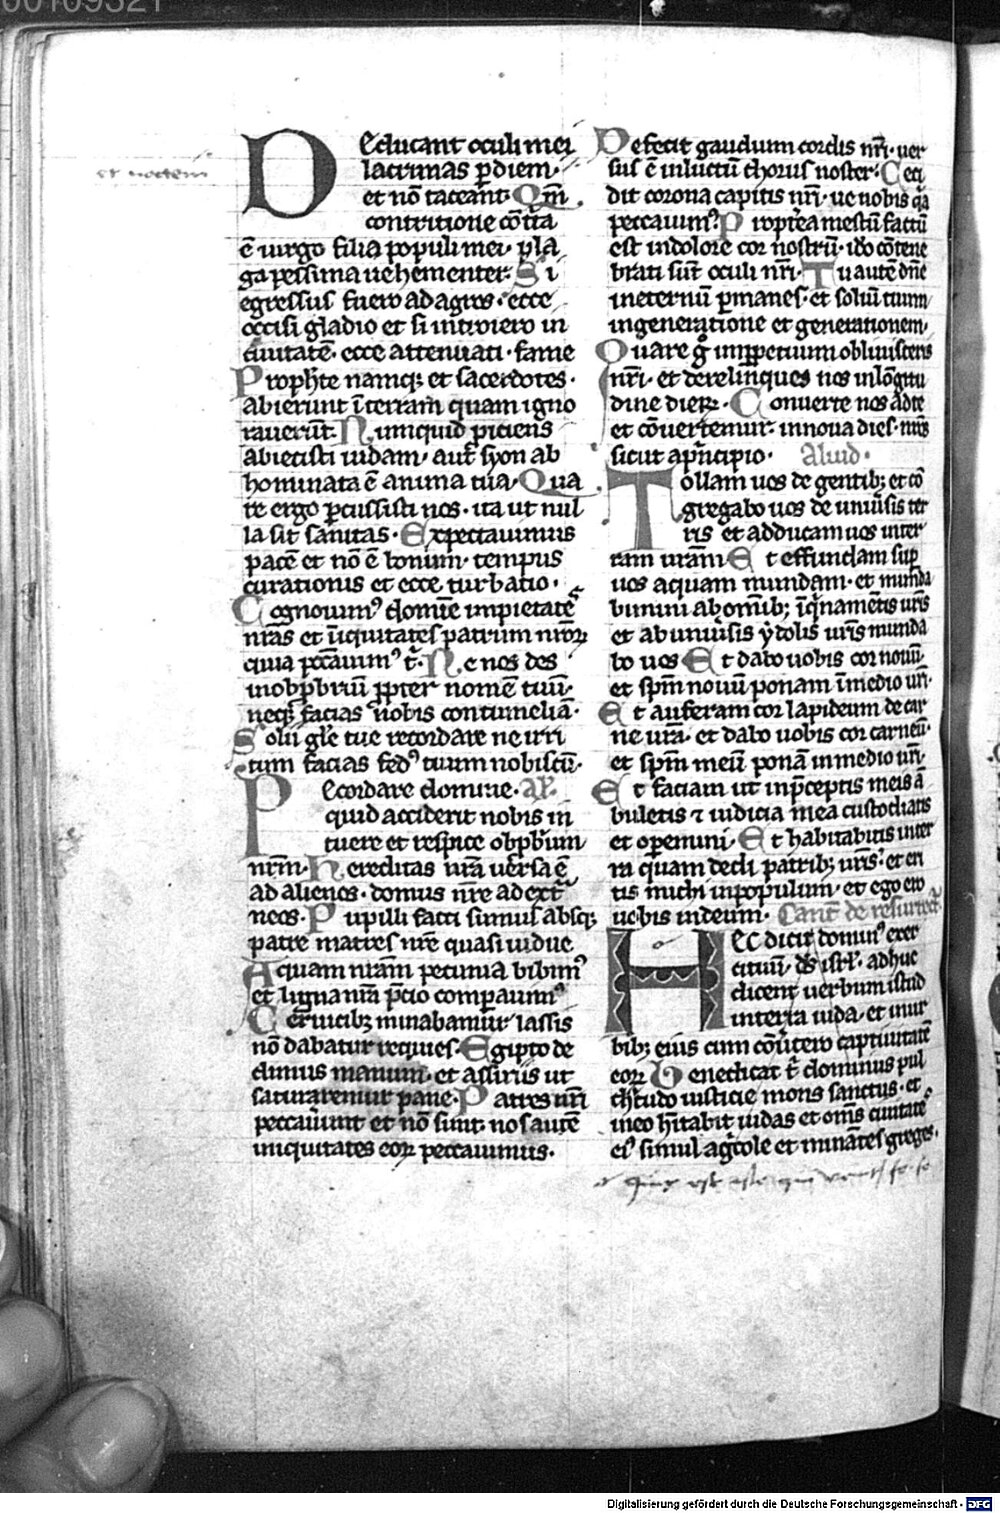 00109321
et noctem
Deducant oculi mei
lacrimas ꝑ diem·
et nō taceant· Qm̄
contritione cōt'ta
ē uirgo filia populi mei· pla
ga pessima uehementer· Si
egressus fuero ad agros· ecce
occisi gladio et si introiero in
ciuitatē· ecce attenuati· fame
Prophͨte namq; et sacerdotes·
abierunt ī terram quam igno
rauerūt· Numquid piciens
abiecisti iudam· aut syon ab
hominata ē anima tua· Qua
re ergo ꝑcussisti nos· ita ut nul
la sit sanitas· Expectauimus
pacē et nō ē bonum· tempus
curationis et ecce turbatio·
Cognouimꝰ domīe impietatē
nr̄as et iīquitates patrum nr̄oꝝ
quia pcc̄auimꝰ t̄· Ne nos des
in obp̄briū ꝓpter nomē tuū·
neq; facias nobis contumeliā·
Solii gl̄e tue recordare ne irri
tum facias fedꝰ tuum nobiscū·
Recordare domine· Al'·
quid acciderit nobis in
tuere et respice obp̄brium
nr̄m· Hereditas nr̄a uersa ē
ad alienos· domus nr̄e ad ext̄
neos· Pupilli facti sumus absq;
patre matres nr̄e quasi uidue
Aquam nr̄am pecunia bibimꝰ
et ligna nr̄a p̄cio compauimꝰ
Ceruicibꝫ minabamur lassis
nō dabatur requies· Egipto de
dimus manum· et assiriis ut
saturaremur pane· Patres nr̄i
peccauerunt et nō sunt· nos autē
iniquitates eoꝝ peccauimus·
Defecit gaudium cordis nr̄i· uer
sus ē in luctū chorus noster· Ceci
dit corona capitis nr̄i· ue nobis q̄a
peccauimꝰ Propt̄ea mestū factū
est in dolore cor nostrū· ido cōtene
brati sūt oculi nr̄i· Tu autē dn̄e
in eternū ꝑmanes· et soliū tuum
in generatione et generationem·
Quare ḡ in ꝑpetuum obliuisceris
nr̄i· et derelinques nos in lōgitu
dine dieꝝ· Conuerte nos ad te
et cōuertemur· innoua dies nr̄os
sicut a p̄ncipio· Aliud·
Tollam uos de gentibꝫ et cō
gregabo uos de uniūsis ter
ris et adducam uos in ter
ram ur̄am Et effundam suꝑ
uos aquam mundam· et munda
bimini ab omibꝫ īq̄namētis ur̄is
et ab uniūsis ydolis ur̄is munda
bo uos Et dabo uobis cor nouū·
et spm̄ nouū ponam ī medio ur̄i·
Et auferam cor lapideum de car
ne ur̄a· et dabo uobis cor carneū·
et spm̄ meū ponā in medio ur̄i·
Et faciam ut in p̄ceptis meis ā
buletis ⁊ iudicia mea custodiatis
et operemini· Et habitabitis in ter
ra quam dedi patribꝫ ur̄is· et eri
tis michi in populum· et ego ero
uobis in deum· Cant' de resurrect'
Hec dicit dominꝰ exer
cituū· ds̄ isrl̄· adhuc
dicent uerbum istud
in terra iuda· et in ur
bibꝫ eius cum cōuertero captiuitatē
eoꝝ Benedicat t̄ dominus pul
ch̄tudo iusticie mons sanctus· et
in eo h̄itabit iudas et oms̄ ciuitatē
eiꝰ simul aḡcole et minātes greges·
Digitalisierung gefördert durch die Deutsche Forschungsgemeinschaft - DFG